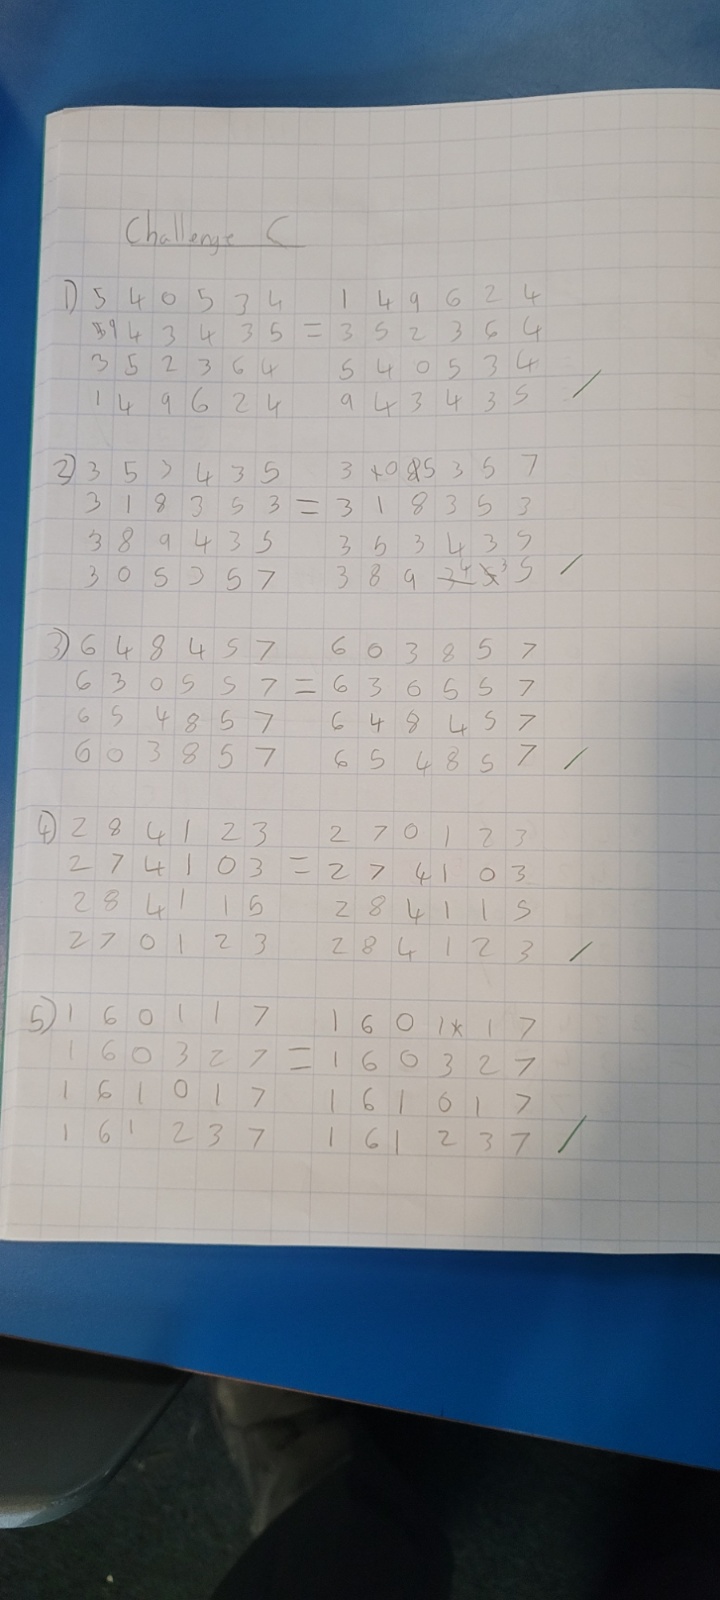 Challenge C
1) 5 4 0 5 3 4 1 4 9 6 2 4
9 4 3 4 3 5 = 3 5 2 3 6 4
3 5 2 3 6 4 5 4 0 5 3 4
1 4 9 6 2 4 9 4 3 4 3 5
2) 3 5 3 4 3 5 3 0 5 3 5 7
3 1 8 3 5 3 = 3 1 8 3 5 3
3 8 9 4 3 5 3 5 3 4 3 5
3 0 5 3 5 7 3 8 9 4 3 5
3) 6 4 8 4 5 7 6 0 3 8 5 7
6 3 0 5 5 7 = 6 3 0 5 5 7
6 5 4 8 5 7 6 4 8 4 5 7
6 0 3 8 5 7 6 5 4 8 5 7
4) 2 8 4 1 2 3 2 7 0 1 2 3
2 7 4 1 0 3 = 2 7 4 1 0 3
2 8 4 1 1 5 2 8 4 1 1 5
2 7 0 1 2 3 2 8 4 1 2 3
5) 1 6 0 1 1 7 1 6 0 1 1 7
1 6 0 3 2 7 = 1 6 0 3 2 7
1 6 1 0 1 7 1 6 1 0 1 7
1 6 1 2 3 7 1 6 1 2 3 7